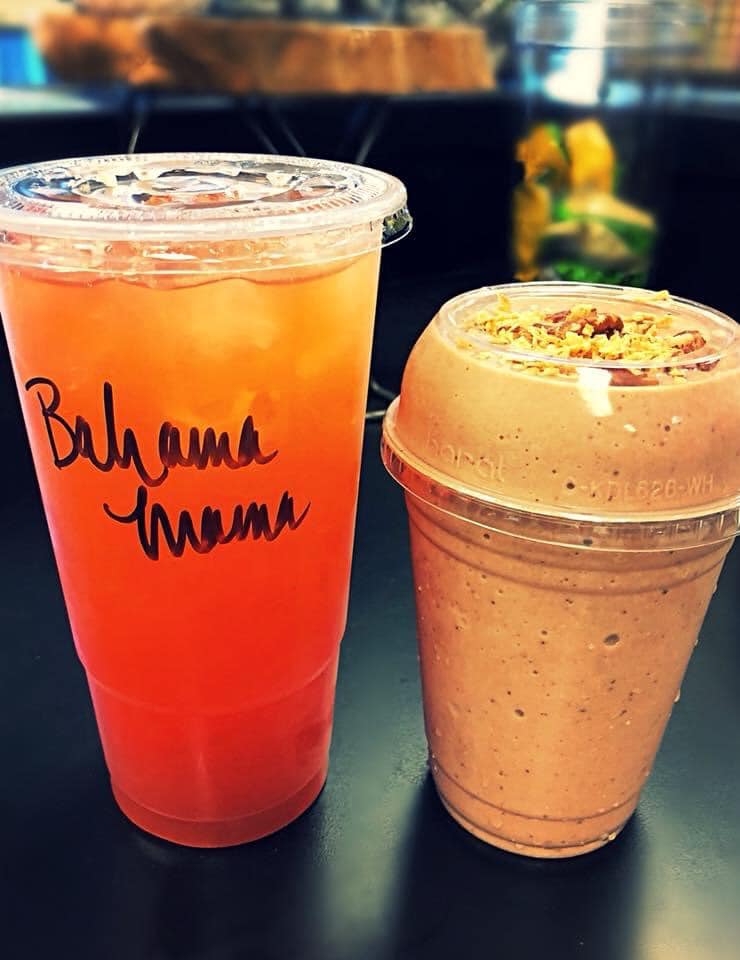 Bahama
mama
Karat
C-KDL626-WH